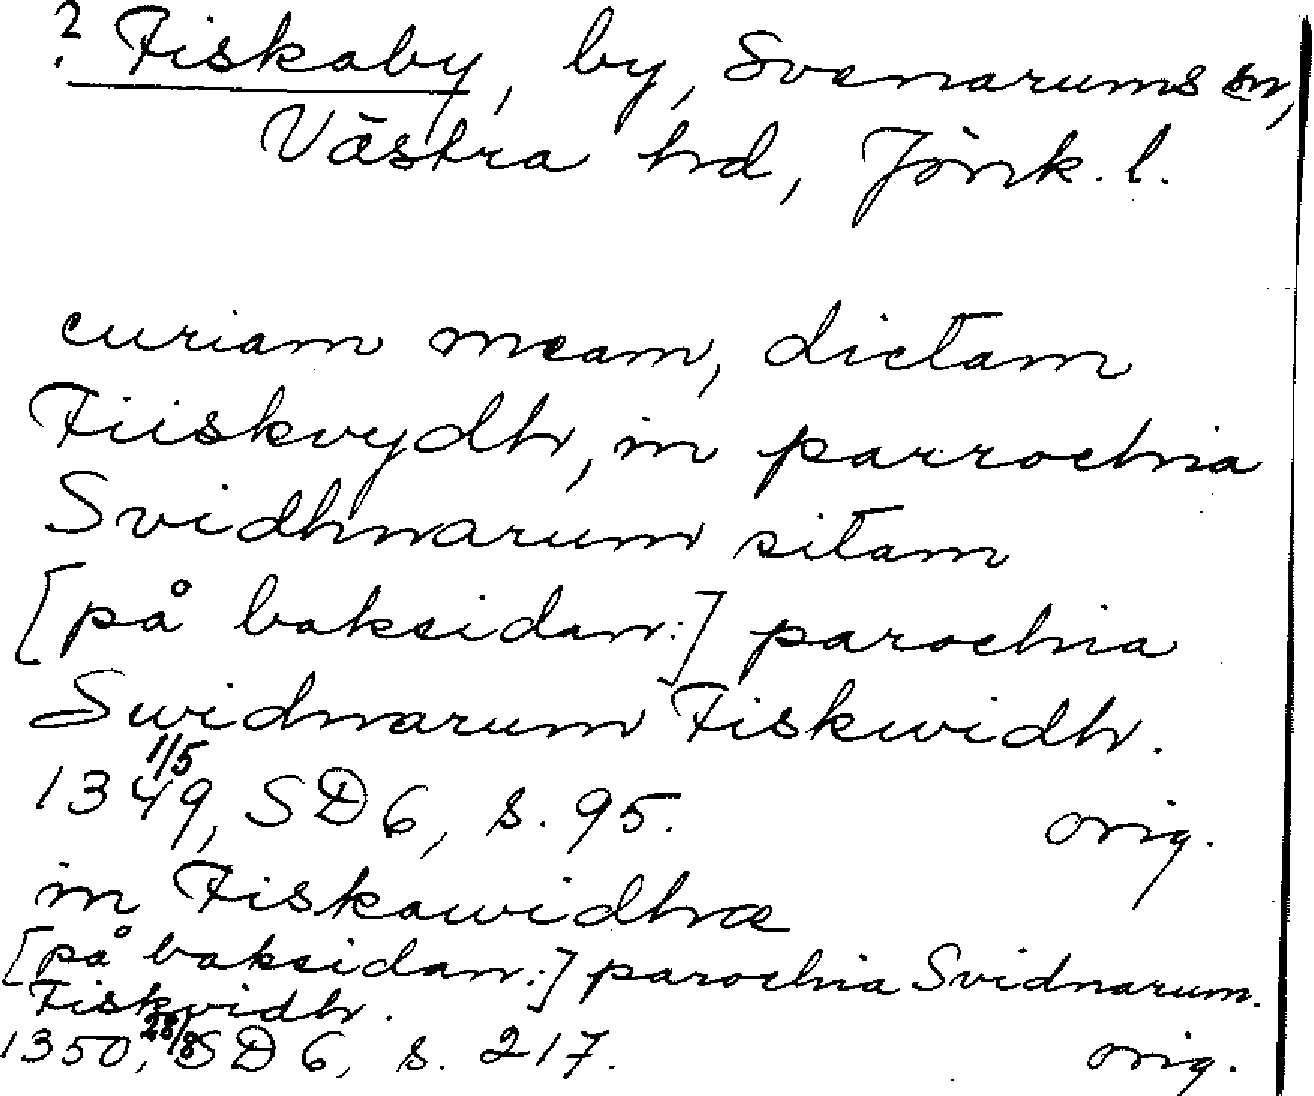 ? Fiskaby, by, Svenarums sn,
Västra hd, Jönk. l.
curiam meam, dictam
Fiiskvydh, in parrochia
Svidhnarum sitam
[på baksidan:] parochia
Swidnarum Fiskwidh.
1349, 1/5 SD 6, s. 95. orig.
in Fiskawidhæ
[på baksidan:] parochia Svidnarum.
Fiskvidh.
1350, 28/8 SD 6, s. 217. orig.